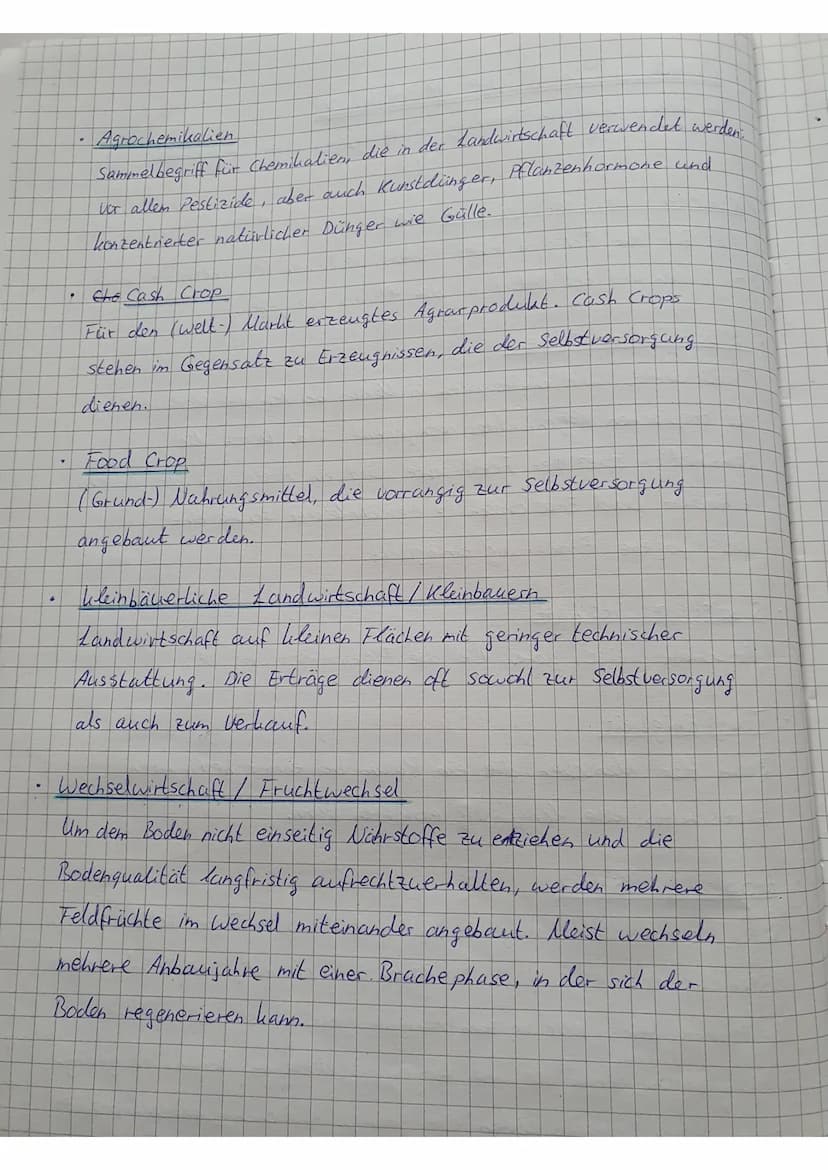 • Agrochemikalien
Sammelbegriff für Chemikalien, die in der Landwirtschaft verwendet werden:
vor allem Pestizide, aber auch Kunstdünger, Pflanzenhormone und
konzentrierter natürlicher Dünger wie Gülle.
• Cash Crop
Für den (Welt-) Markt erzeugtes Agrarprodukt. Cash Crops
stehen im Gegensatz zu Erzeugnissen, die der Selbstversorgung
dienen.
• Food Crop
(Grund-) Nahrungsmittel, die vorrangig zur Selbstversorgung
angebaut werden.
• Kleinbäuerliche Landwirtschaft / Kleinbauern
Landwirtschaft auf kleinen Flächen mit geringer technischer
Ausstattung. Die Erträge dienen oft sowohl zur Selbstversorgung
als auch zum Verkauf.
• Wechselwirtschaft / Fruchtwechsel
Um dem Boden nicht einseitig Nährstoffe zu entziehen und die
Bodenqualität langfristig aufrechtzuerhalten, werden mehrere
Feldfrüchte im Wechsel miteinander angebaut. Meist wechseln
mehrere Anbaujahre mit einer Brachephase, in der sich der
Boden regenerieren kann.